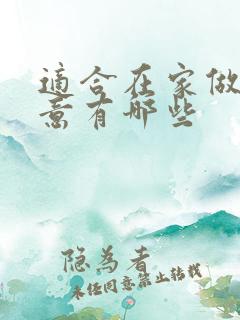 適合在家做
意有哪些
隐為者
未经同意禁止转载